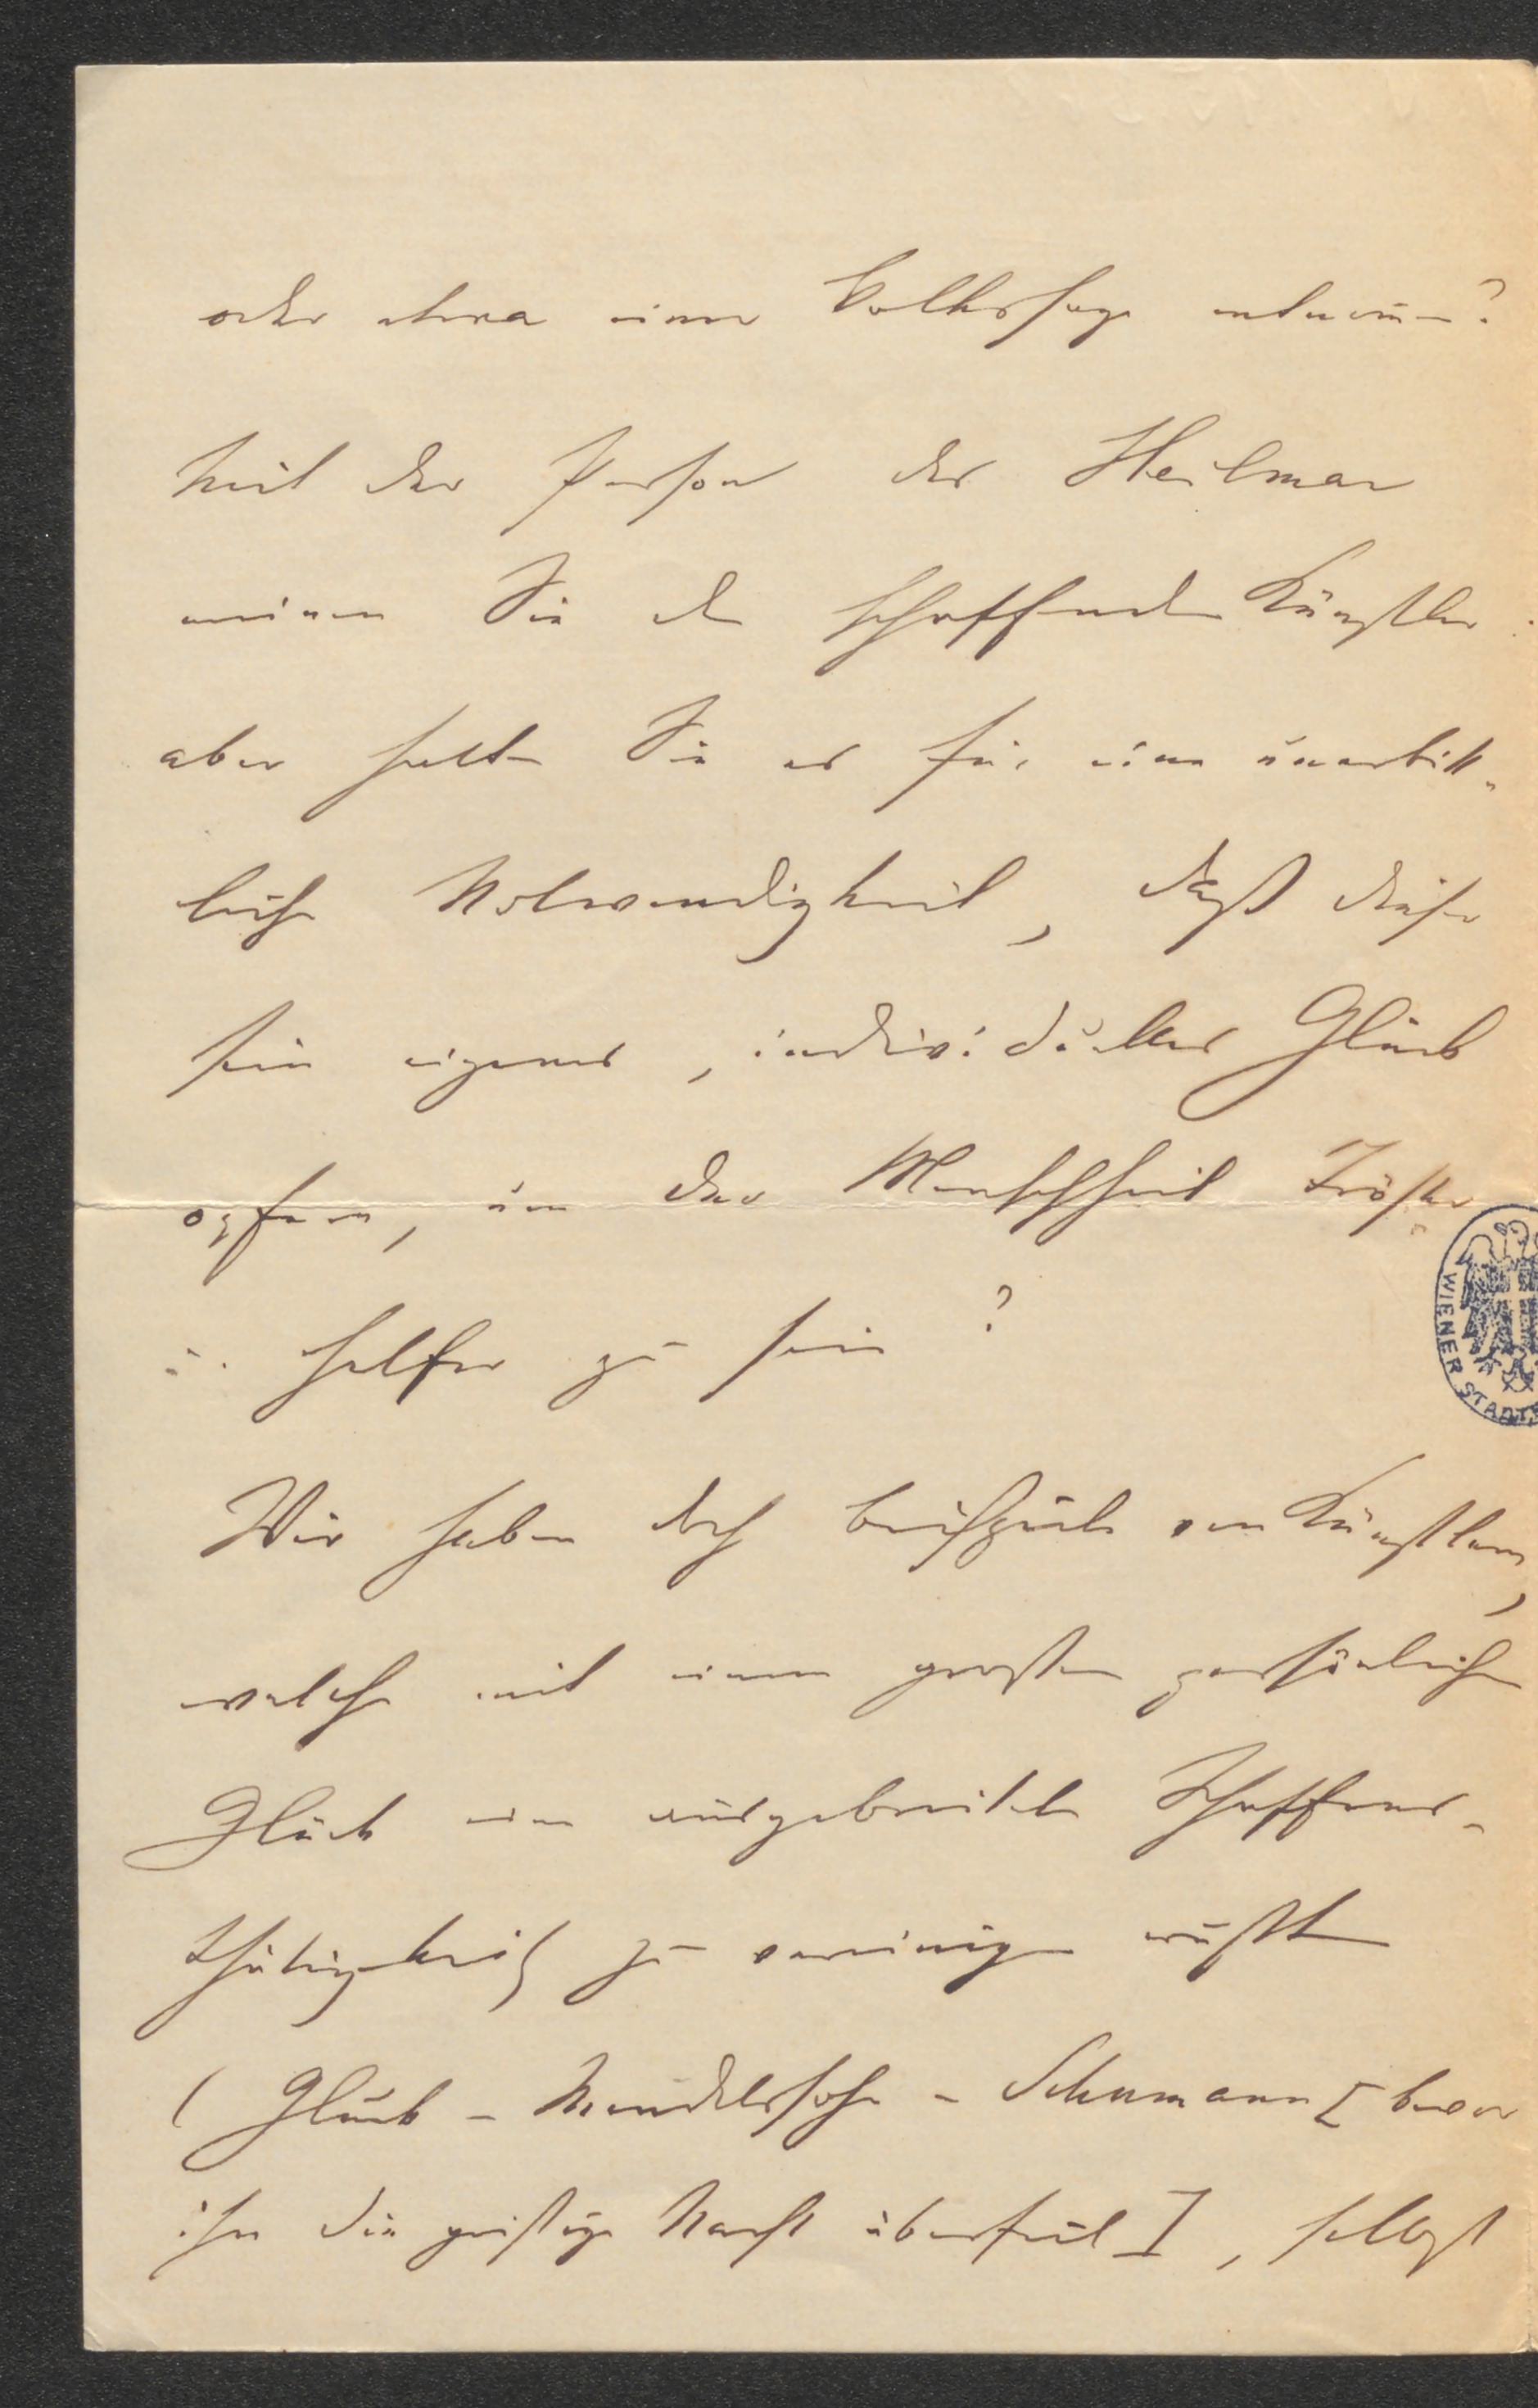 oder etwa einer Volkssage entnom̄en?
Mit der Person des Heilmar
meinen Sie den schaffenden Künstler.
aber halten Sie es für eine unerbitt-
liche Notwendigkeit, daß dieser
sein eigenes, individuelles Glück
opfern, um der Menschheit Tröster
u. Helfer zu sein?
Wir haben doch Beispiele von Künstlern,
welche mit einem großen persönlichen
Glück eine ausgebreitete Schaffens-
thätigkeit zu vereinigen wußten
(Gluck – Mendelssohn – Schumann [bevor
ihn die geistige Nacht überfiel], selbst
WIENER STADT